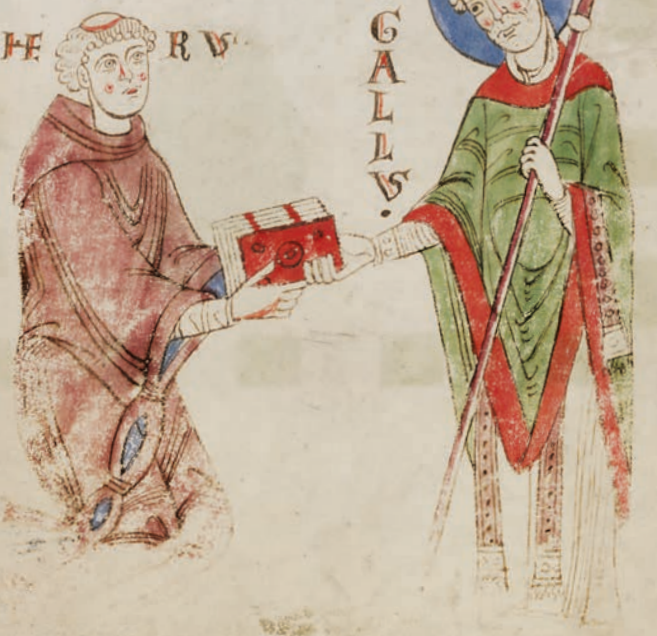 HE RVS
GALLVS.